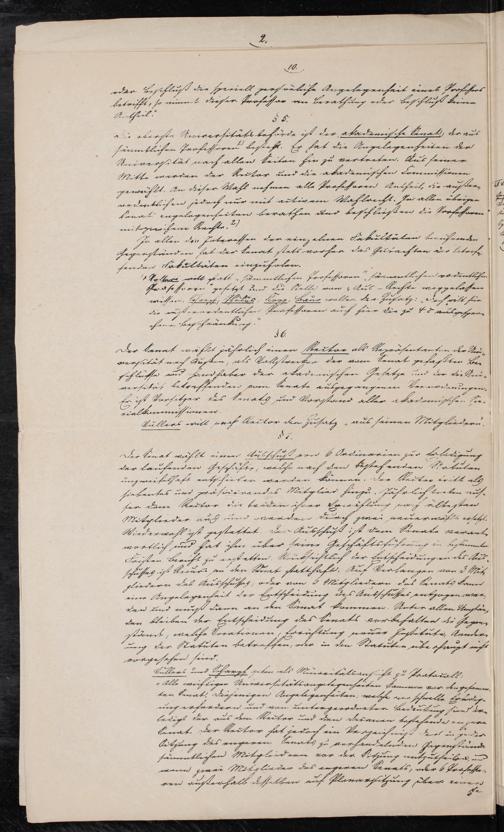 2.
10.
oder Beschluß die speciell persönliche Angelegenheit eines Professors
betrifft, so nimmt dieser Professor an Berathung oder Beschluß keinen
Antheil.
§ 5.
Die oberste Universitätsbehörde ist der akademische Senat, der aus
sämmtlichen Professoren besteht. Er hat die Angelegenheiten der
Universität nach allen Seiten hin zu vertreten. Aus seiner
Mitte werden der Rector und die akademischen Commissionen
gewählt. An dieser Wahl nehmen alle Professoren Antheil, die außer-
ordentlichen jedoch nur mit activem Wahlrecht. In allen übrigen
Senatsangelegenheiten berathen und beschließen die Professoren
mit gleichem Rechte.
In allen die Interessen der einzelnen Facultäten berührenden
Gegenständen hat der Senat stets vorher das Gutachten der betref-
fenden Facultäten einzuholen.
will statt "sämmtlichen Professoren" "sämmtlichen ordentlichen
Professoren" gesetzt und die Stelle von "An - Rechte" weggelassen
wissen. wollen den Zusatz: "doch gilt für
die außerordentlichen Professoren auch hier die zu § 4
Beschränkung."
§ 6
Der Senat wählt jährlich einen Rector als Repräsentanten der Uni-
versität nach Außen, als Vollstrecker der vom Senat gefaßten Be-
schlüsse und Handhaber der akademischen Gesetze und der die Uni-
versität betreffenden vom Senate ausgegangenen Verordnungen.
Er ist Vorsitzer des Senats und Vorstand aller akademischen Spe-
cialcommissionen.
Vullers will nach Rector den Zusatz "aus seinen Mitgliedern".
§ 7.
Der Senat wählt einen Ausschuß von 6 Ordinarien zur Erledigung
der laufenden Geschäfte, welche nach den bestehenden Statuten
unzweifelhaft entschieden werden können. Der Rector tritt als
leitendes und präsidirendes Mitglied hinzu. Jährlich treten au-
ßer dem Rector die beiden ihrer Erwählung nach ältesten
Mitglieder aus und werden durch zwei neuerwählte ersetzt.
Wiederwahl ist gestattet. Der Ausschuß ist dem Senate verant-
wortlich und hat ihm über seine Geschäftsführung in
Fristen Bericht zu erstatten. der Entscheidungen des Aus-
schusses ist Recurs an den Senat statthaft. Auf Verlangen von 2 Mit-
gliedern des Ausschusses, oder von 6 Mitgliedern des Senats kann
eine Angelegenheit der Entscheidung des Ausschusses entzogen wer-
den und muß dann an den Senat kommen. Unter allen Umstän-
den bleiben der Entscheidung des Senats vorbehalten die Gegen-
stände, welche Creationen, Errichtung neuer Institute, Aender-
ung der Statuten betreffen, oder in den Statuten überhaupt nicht
vorgesehen sind.
Vullers und geben als Minoritätsansicht zu Protocoll:
"Alle wichtigen Universitätsangelegenheiten kommen vor den gesamm-
ten Senat. Diejenigen Angelegenheiten, welche eine schnelle Erledig-
ung erfordern und von untergeordneter Bedeutung sind, er-
ledigt der aus dem Rector und den Decanen bestehende engere
Senat. Der Rector hat jedoch ein Verzeichniß der in jeder
Sitzung des engeren Senats zu verhandelnden Gegenstände
sämmtlichen Mitgliedern vor der Sitzung mitzutheilen, und
wenn zwei Mitglieder des engeren Senats, oder 6 Professo-
ren außerhalb desselben auf Plenarsitzung über einen